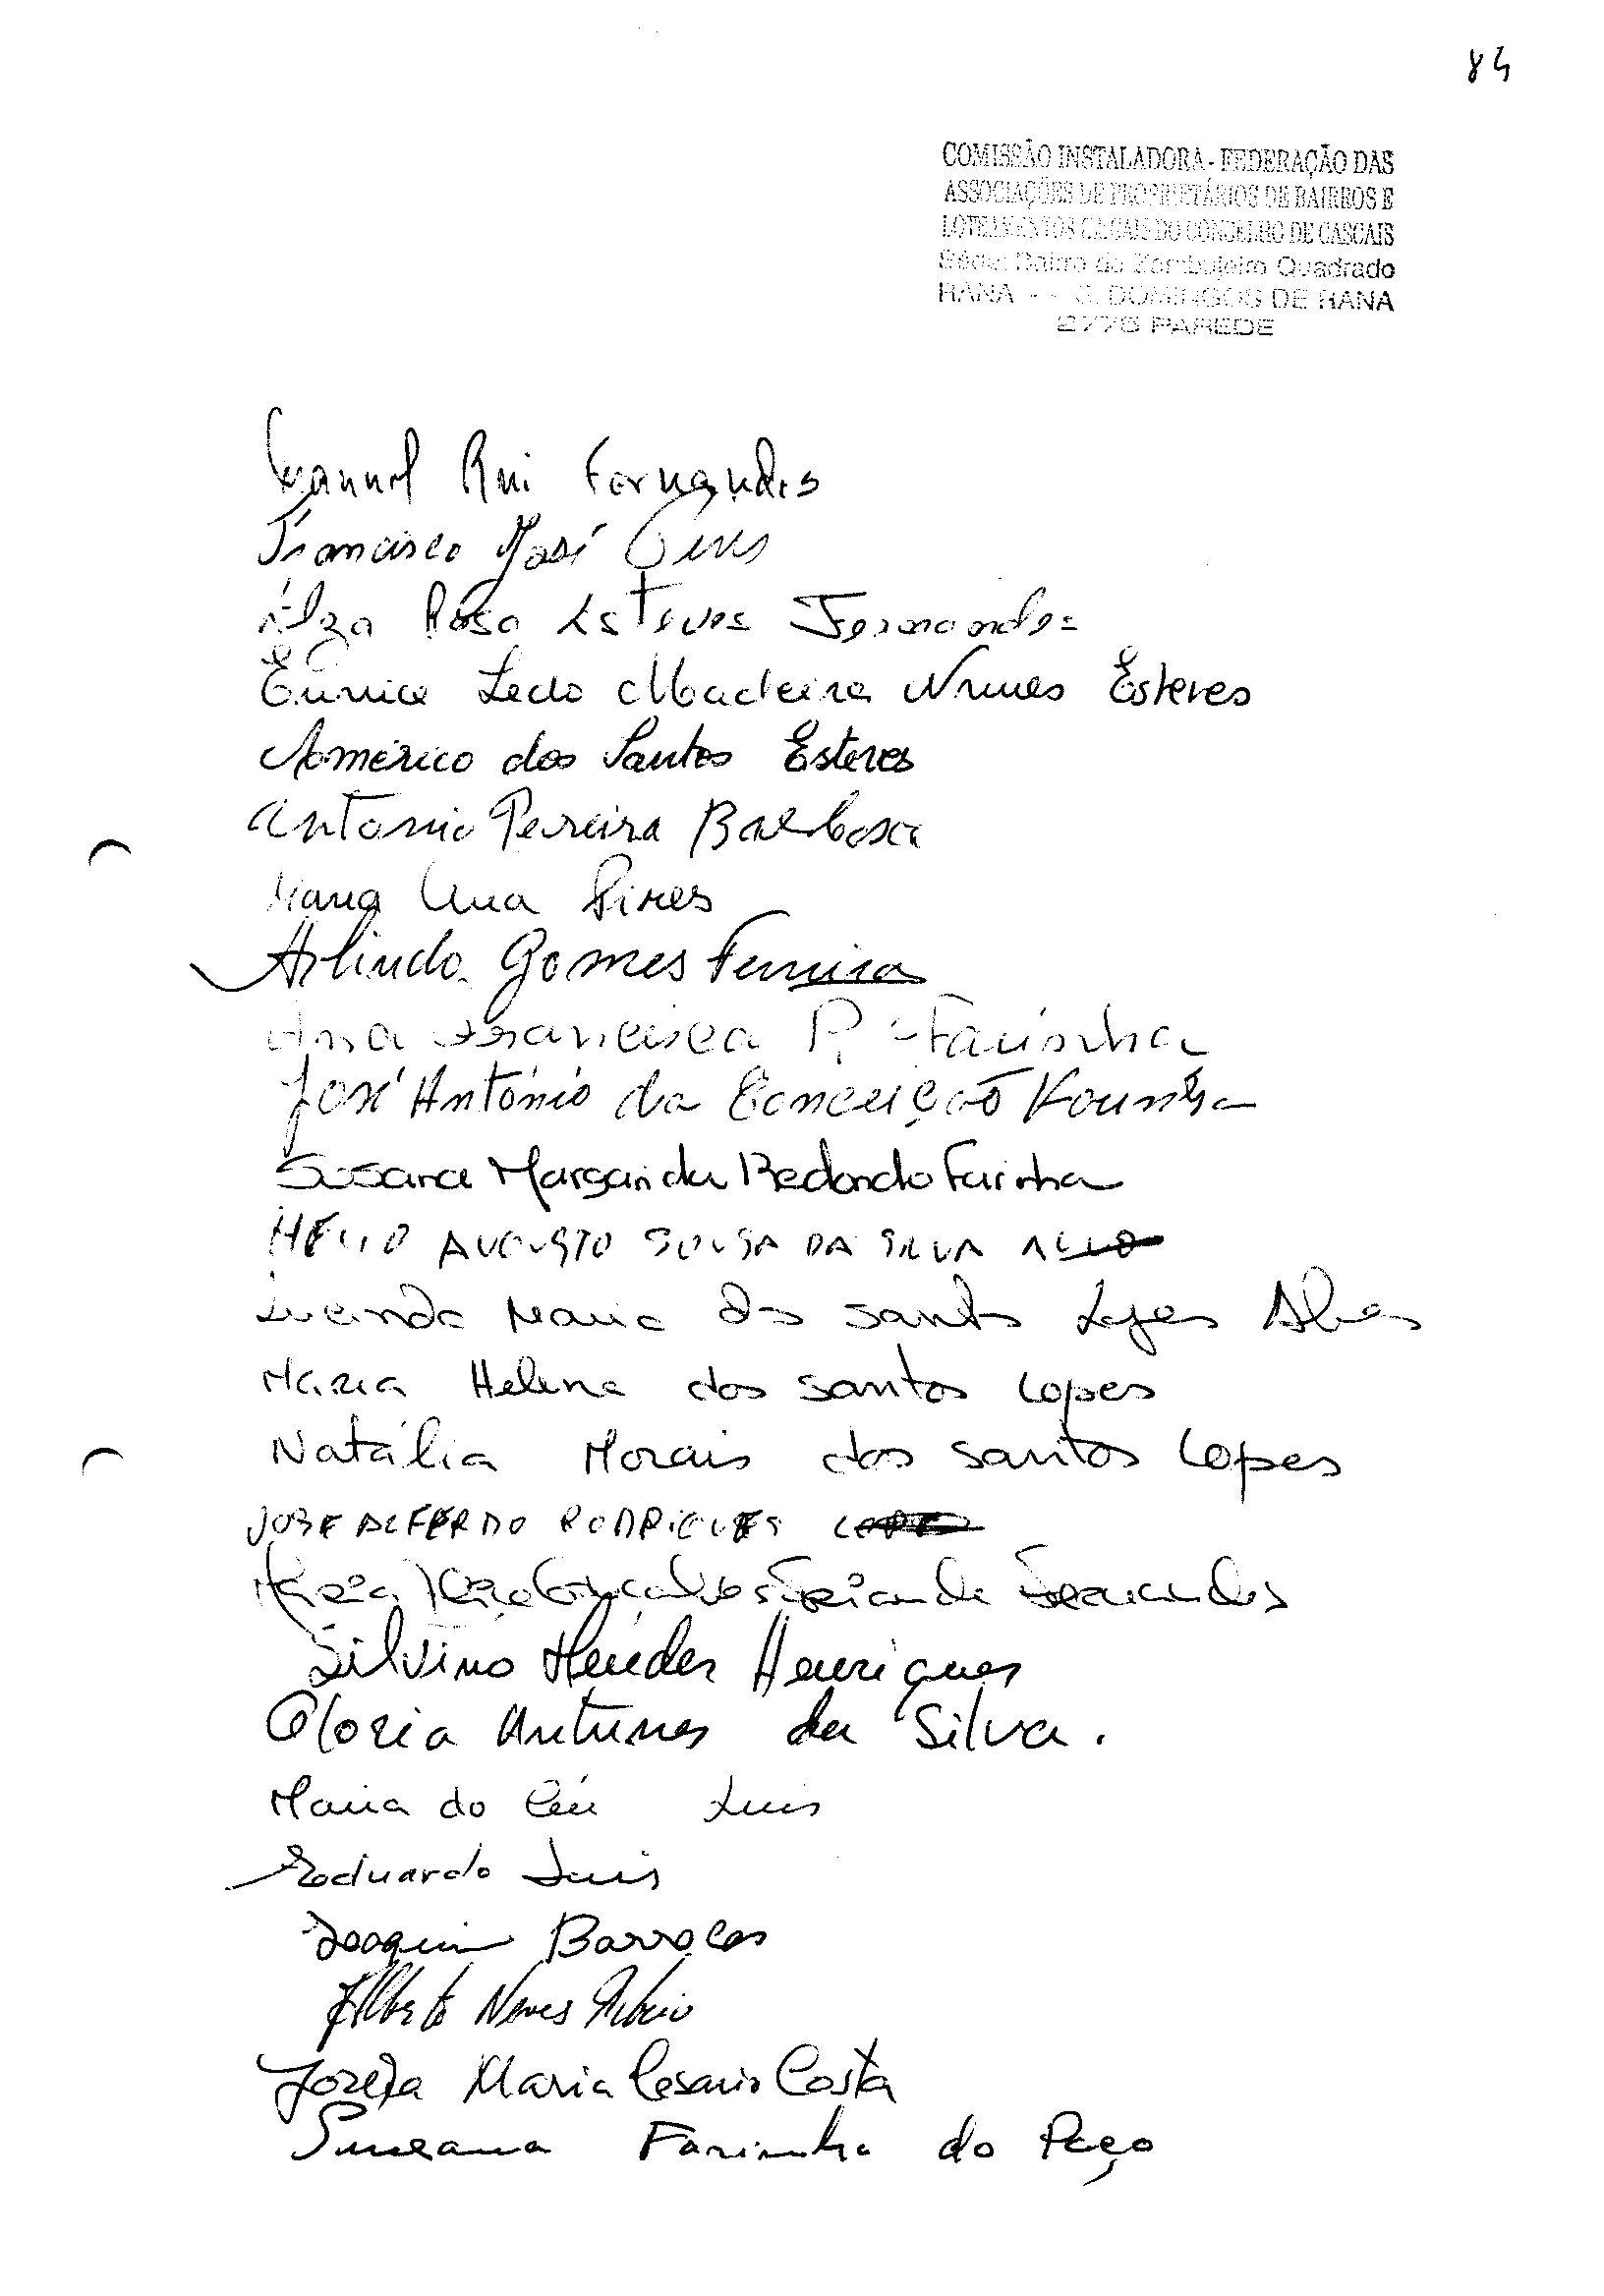 84
COMISSÃO INSTALADORA - FEDERAÇÃO DAS
ASSOCIAÇÕES DE PROPRIETÁRIOS DE BAIRROS E
LOTEAMENTOS ILEGAIS DO CONCELHO DE CASCAIS
Séde: Bairro do Zambujeiro Quadrado
RANA - - S. DOMINGOS DE RANA
2775 PAREDE
Manuel Rui Fernandes
Francisco José
Elza Rosa Esteves Fernandes
Eunice Ledo Madeira Nunes Esteves
Américo dos Santos Esteves
Antonio Pereira Barbosa
Maria Ana Pires
Arlindo Gomes Ferreira
Ana Francisca P. Farinha
José António da Conceição Farinha
Susana Margarida Redondo Farinha
HÉLIO AUGUSTO SOUSA DA SILVA
Lucinda Maria dos Santos Lopes Alves
Maria Helena dos Santos Lopes
Natália Morais dos Santos Lopes
JOSE ALFREDO RODRIGUES LOPES
Maria Fernandes
Silvino Mendes Henriques
Gloria Antunes da Silva.
Maria do Céu Luis
Eduardo Luis
Joaquim Barrocas
Alberto Neves Ribeiro
Maria Cesario Costa
Farinha do Paço